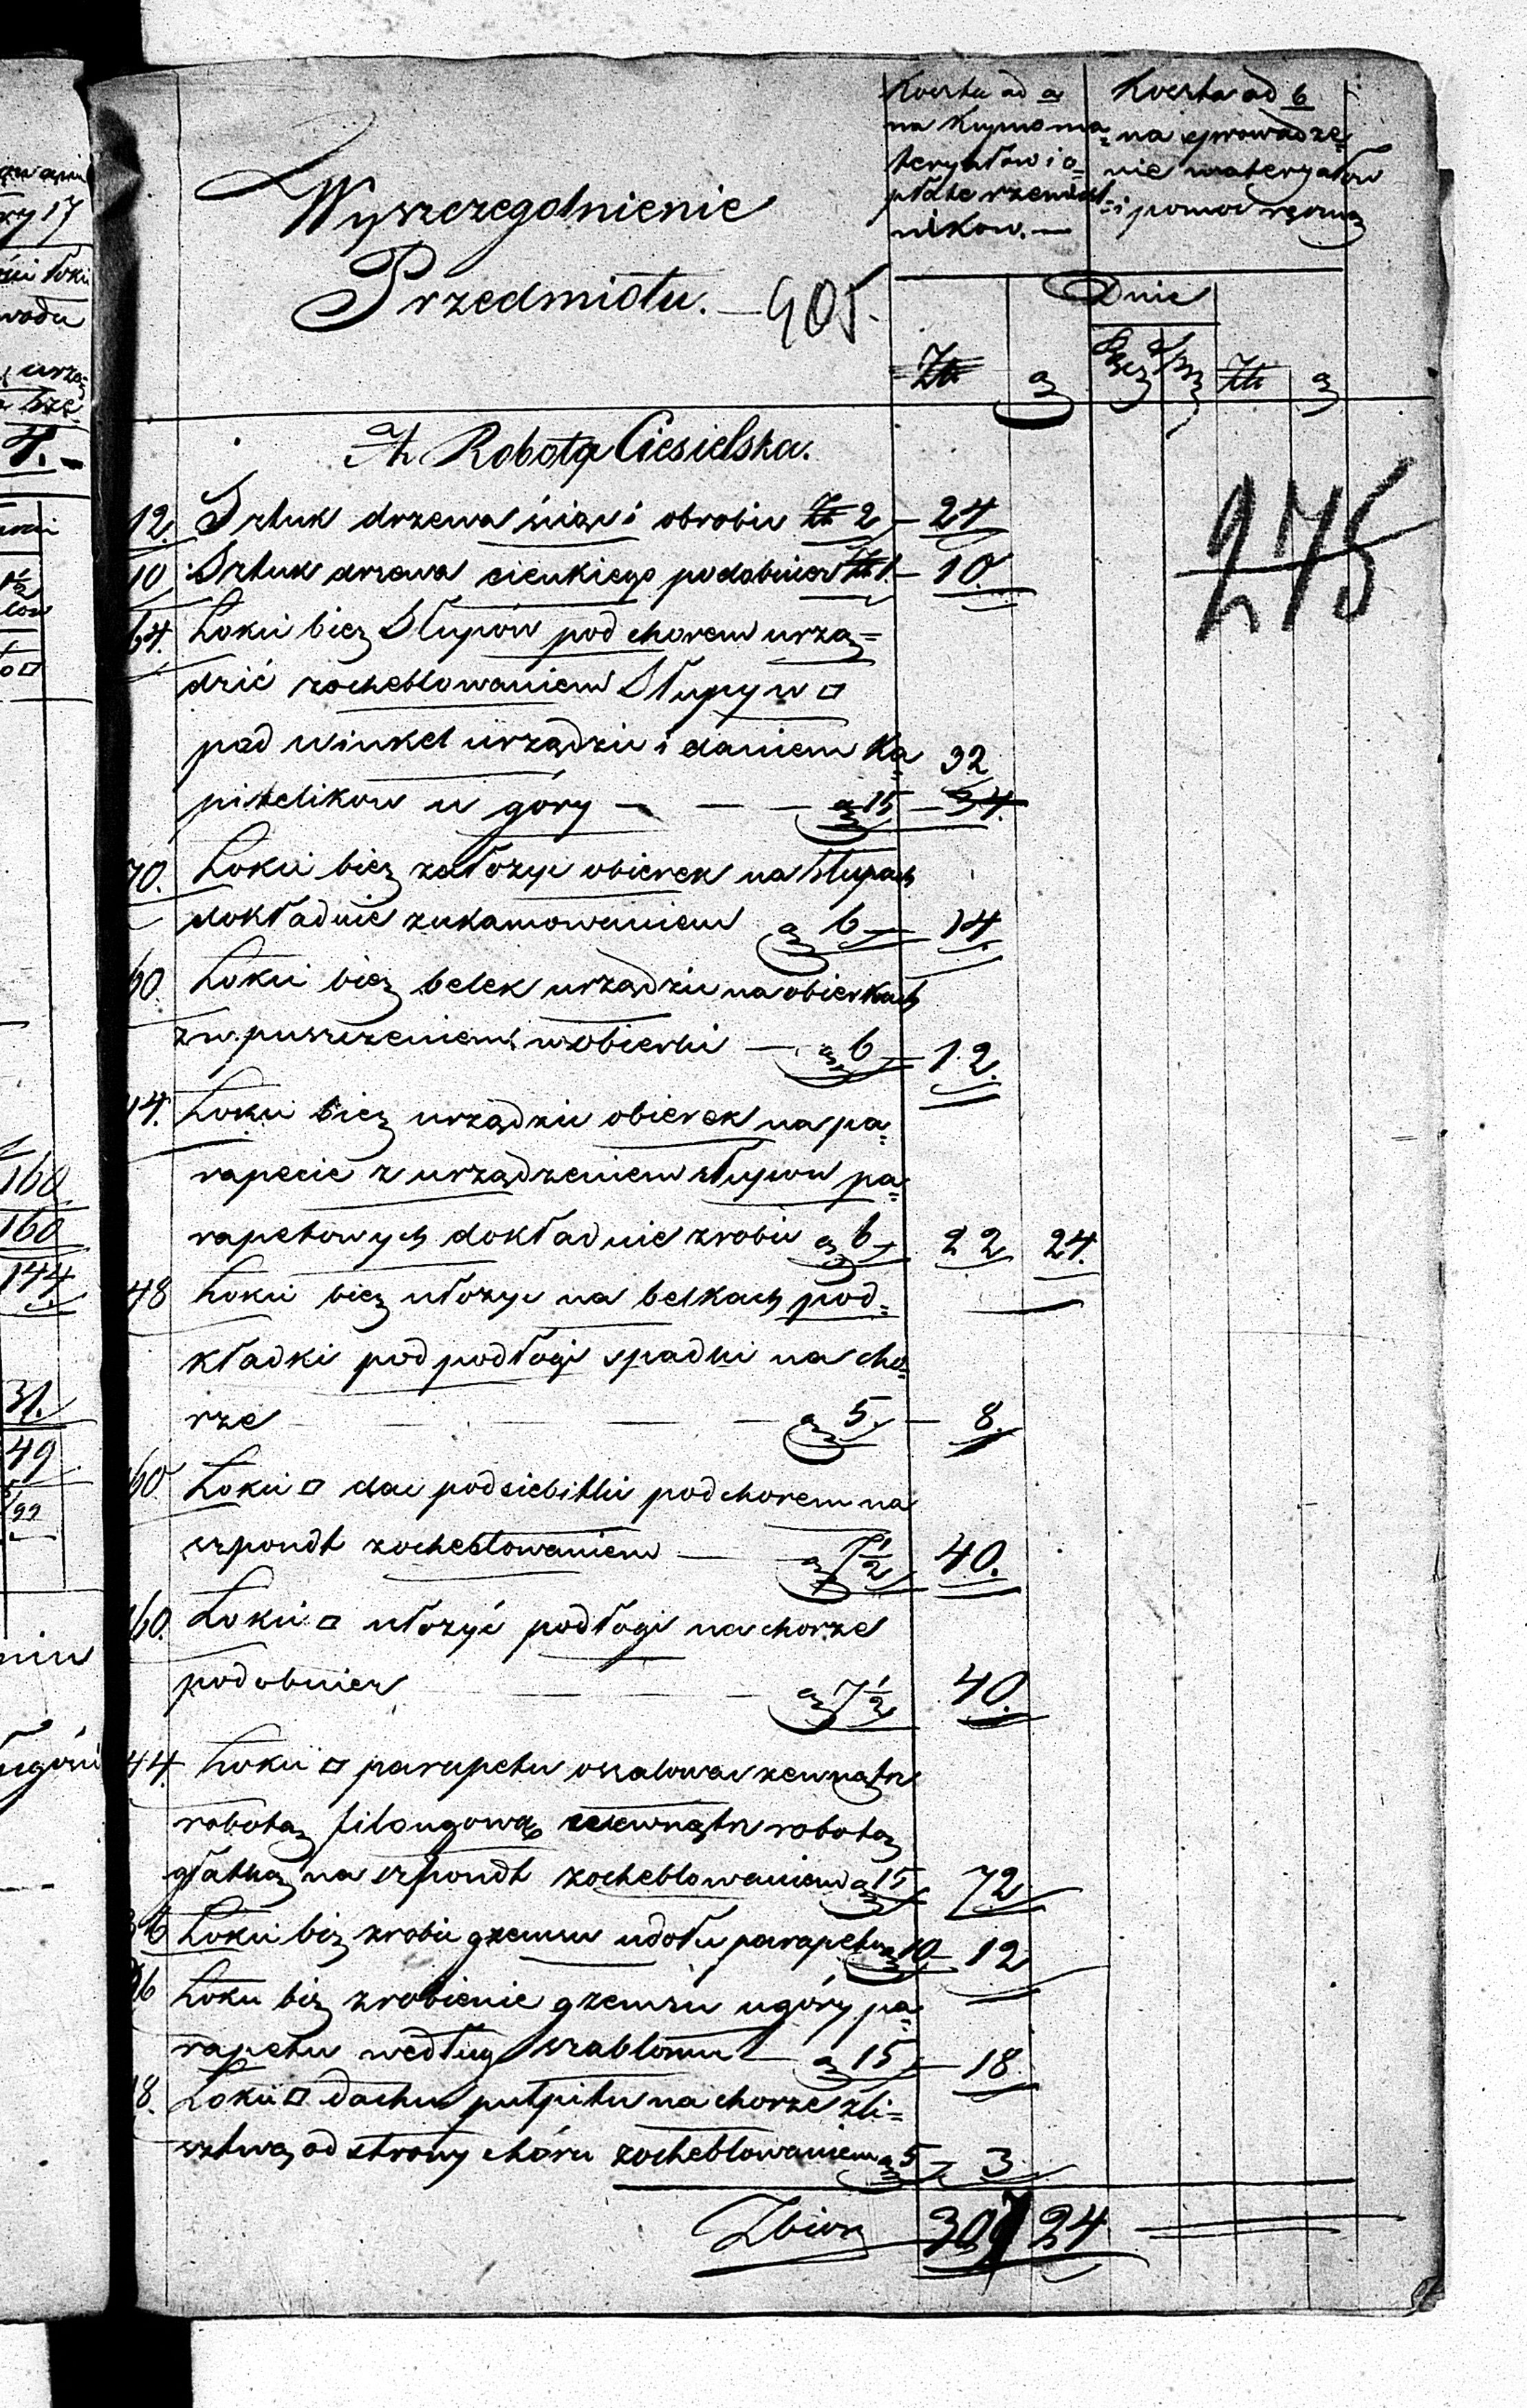 Wyszczegolnienie
Przedmiotu. — 405.
Koszta ad a
na kupno ma=
teryałow i o=
płate rzemieśl=
nikow. —
Koszta ad b
na sprowadze=
nie materyałow
i pomoc ręczną
Dnie
Zł. g Zł. g
275
Robota Ciesielska.
12. Sztuk drzewa ściąć i obrobić Zł 2 — 24
10 Sztuk drzewa cienkiego podobnież Zł 1. — 10.
64. Łokci bież Słupow pod chorem urzą=
dzić zocheblowaniem Słupy w □
pod winkel urządzić i daniem Ka= 32
pitelikow u góry — — — g 15 — 34.
70. Łokci bież założyć obierek na słupach
dokładnie zukamowaniem g 6 — 14.
60. Łokci bież belek urządzić na obierkach
z wpuszczeniem w obierki — g 6 — 12.
Łokci bież urządzić obierek na pa=
rapecie z urządzeniem słupow pa=
rapetowych dokładnie zrobić g 6 — 22 24.
48 Łokci bież ułożyć na belkach pod=
kładki pod podłogi spadki na cho=
rze — — — g 5. — 8.
160 Łokci □ dać podsiebitki pod chorem na
szpondt zocheblowaniem — g 7½ 40.
160. Łokci □ ułożyć podłogi na chorze
podobnież — — — g 7½ 40.
144. Łokci □ parapetu oszalować zewnątrz
robotą filongową wewnątrz robotą
gładką na szpondt zocheblowaniem g 15 72
36 Łokci bież zrobić gzemsu udołu parapetu g 10 — 12
36 Łokci bież zrobienie gzemsu ugóry pa=
rapetu według szablonu — g 15 — 18.
18. Łokci □ dachu pulpitu na chorze zli=
sztwą od strony chóru zocheblowaniem g 5 — 3.
Zbior 307 24
160
160
144
31.
49